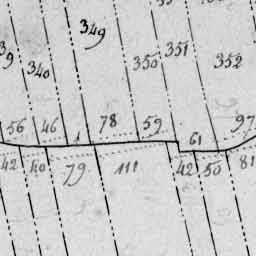 349
340
350
351
352
56
46
78
59
61
97
42
40
79
111
42
50
81